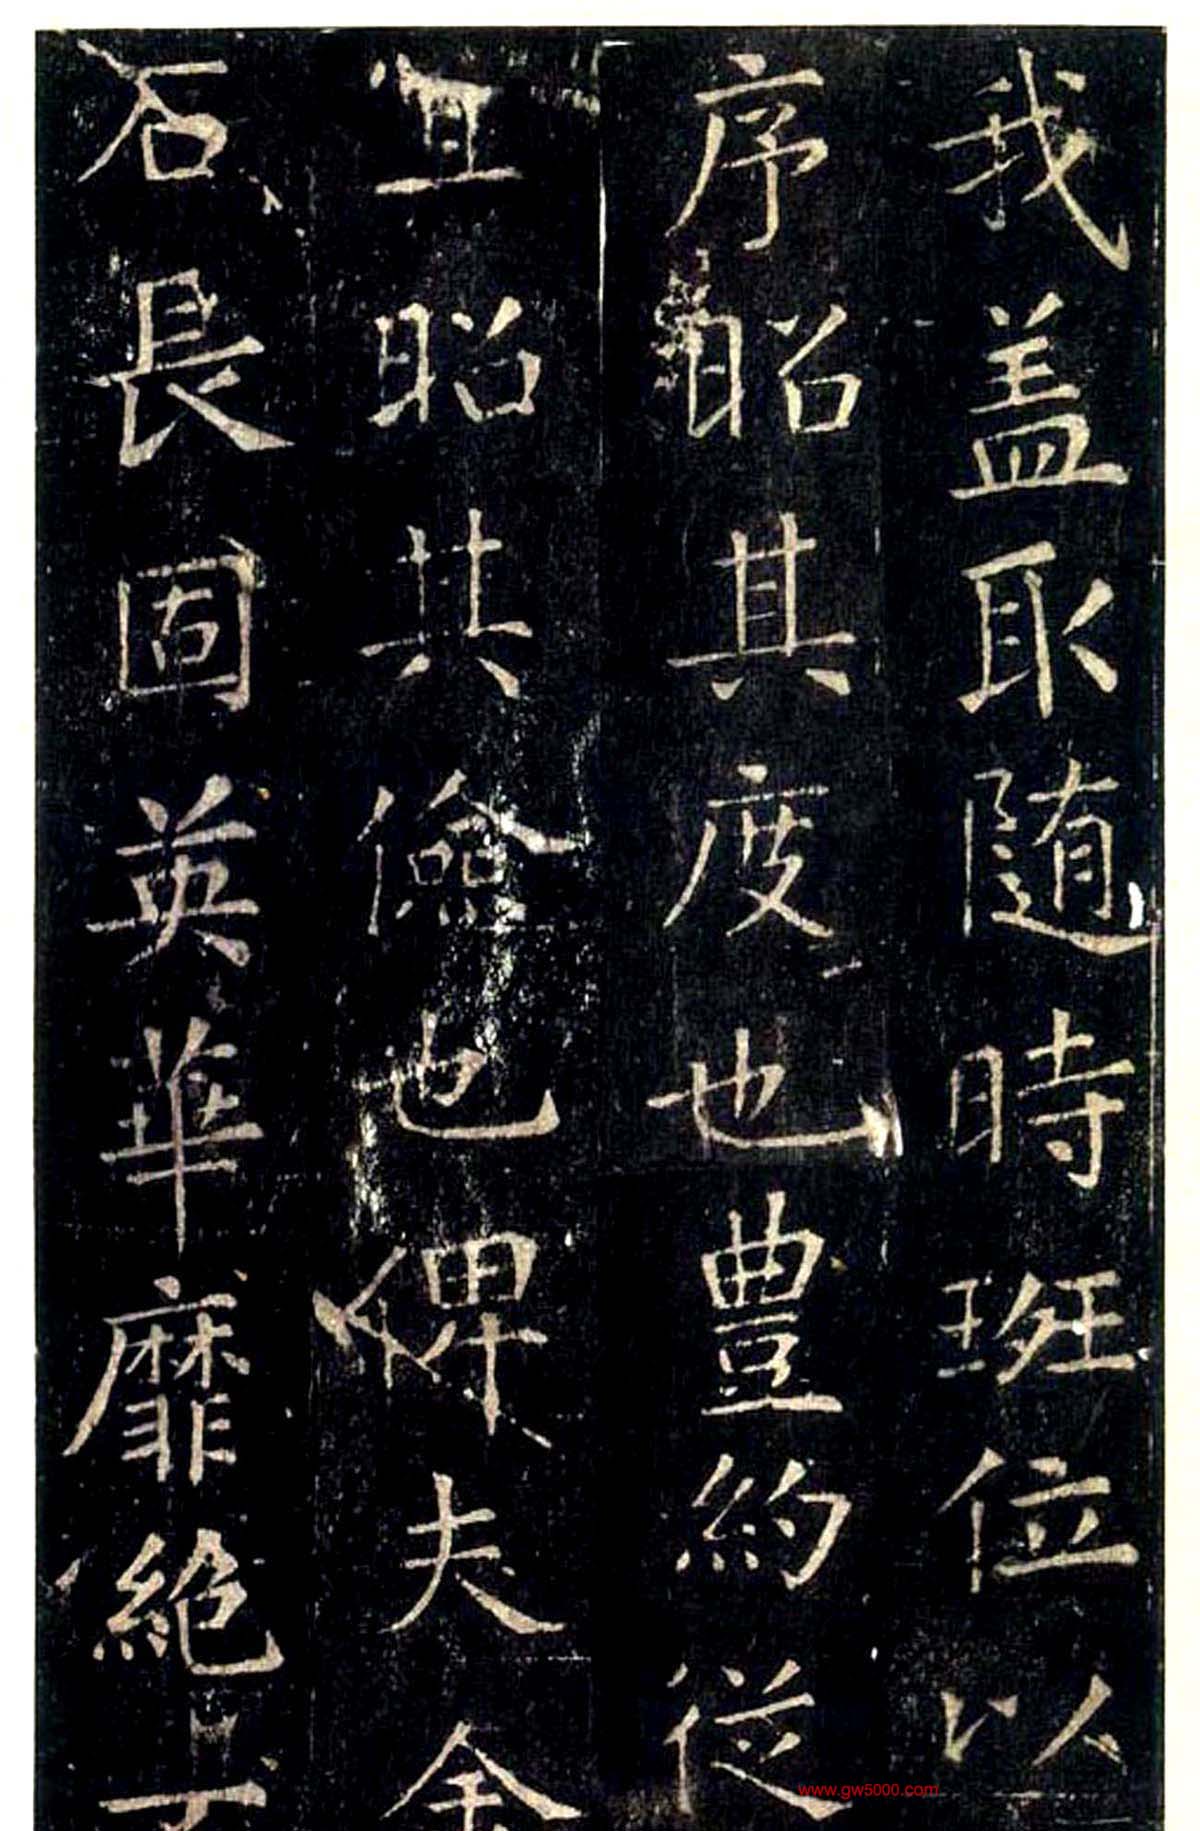 我盖取随時班位以
序昭其度也豊約従
宜昭其儉也俾夫金
石長固英華靡絶
www.gw5000.com